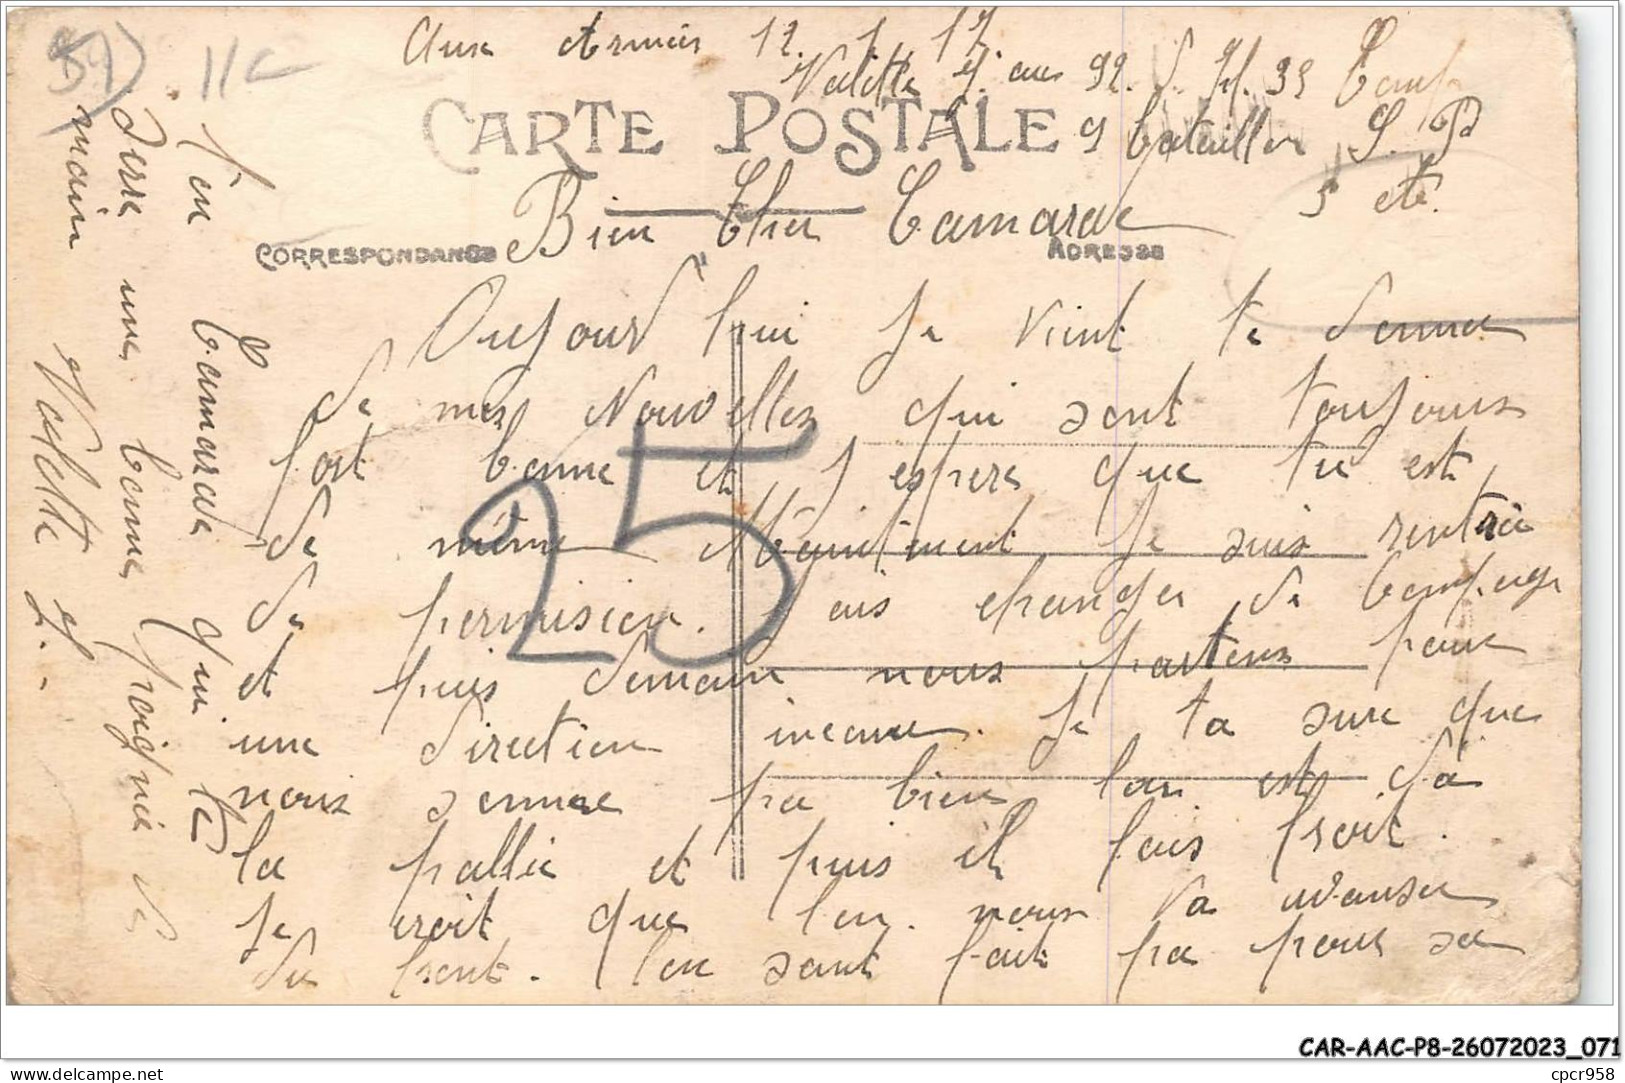 Aux Armées 12. 1. 17.
Valette J. au 92. 33
CARTE POSTALE
9 bataillon S. P.
5
Bien Cher Camarade
CORRESPONDANCE
ADRESSE
Oujourd'hui Je vient te donner
de mes Nouvelles qui sont toujours
fort bonne et J'espere que tu est
de même Maintenant Je suis rentrée
de permision. J'ais changer de Compagn
et puis demain nous partons pour
une direction inconue. Je ta sure que
nous sennne pa bien lou est Dà
la pallie et puis il fais froit.
Je croit que l'on nous va avanser
du front. l'on sont fait pa pour sa
T'on Camarade qui te
Serre une bonne poignée de
main Valette J.
25
11C
CAR-AAC-P8-26072023_071
cpcr958